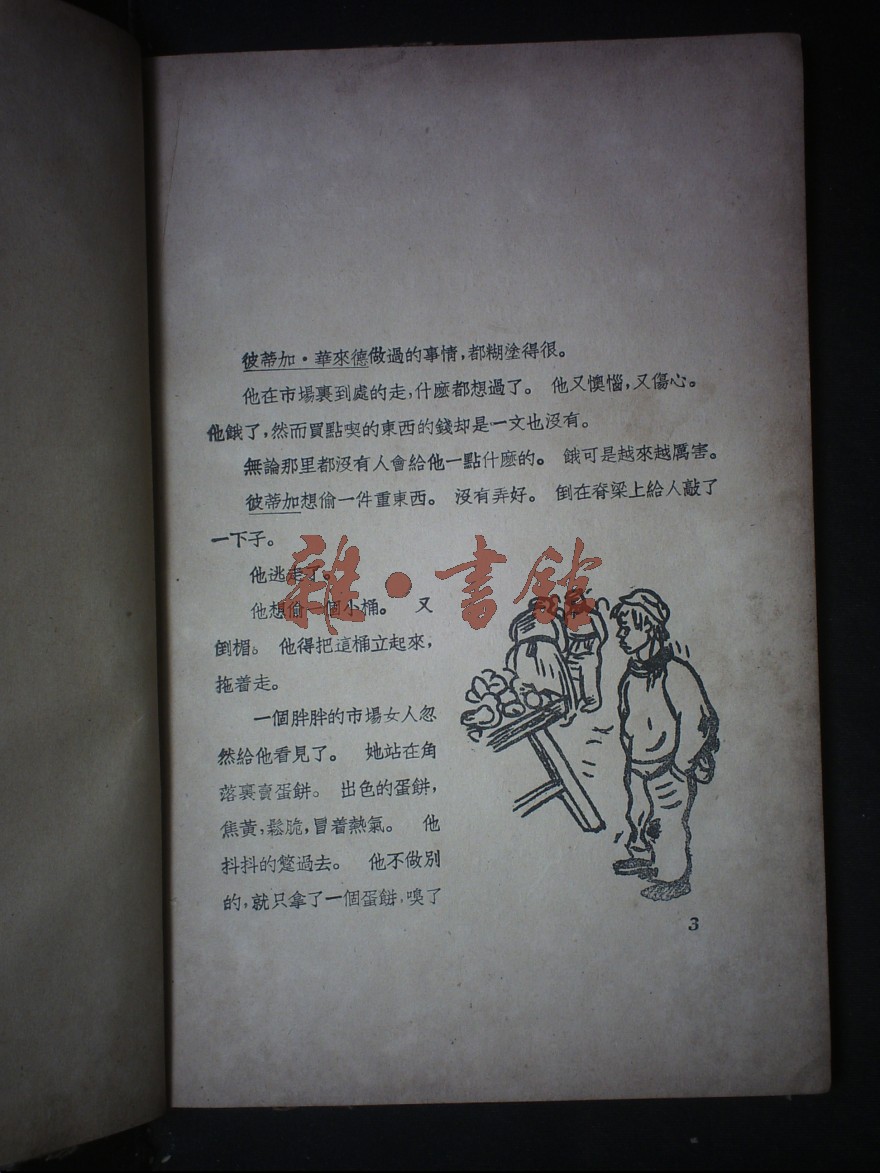 彼蒂加·華來德做過的事情,都糊塗得很。
他在市場裏到處的走,什麼都想過了。 他又懊惱,又傷心。
他餓了,然而買點喫的東西的錢却是一文也沒有。
無論那里都沒有人會給他一點什麼的。 餓可是越來越厲害。
彼蒂加想偷一件重東西。 沒有弄好。 倒在脊梁上給人敲了
一下子。
他逃走了。
他想偷一個小桶。 又
倒楣。 他得把這桶立起來,
拖着走。
一個胖胖的市場女人忽
然給他看見了。 她站在角
落裏賣蛋餅。 出色的蛋餅,
焦黃,鬆脆,冒着熱氣。 他
抖抖的蹩過去。 他不做別
的,就只拿了一個蛋餅,嗅了
3
雜·書館